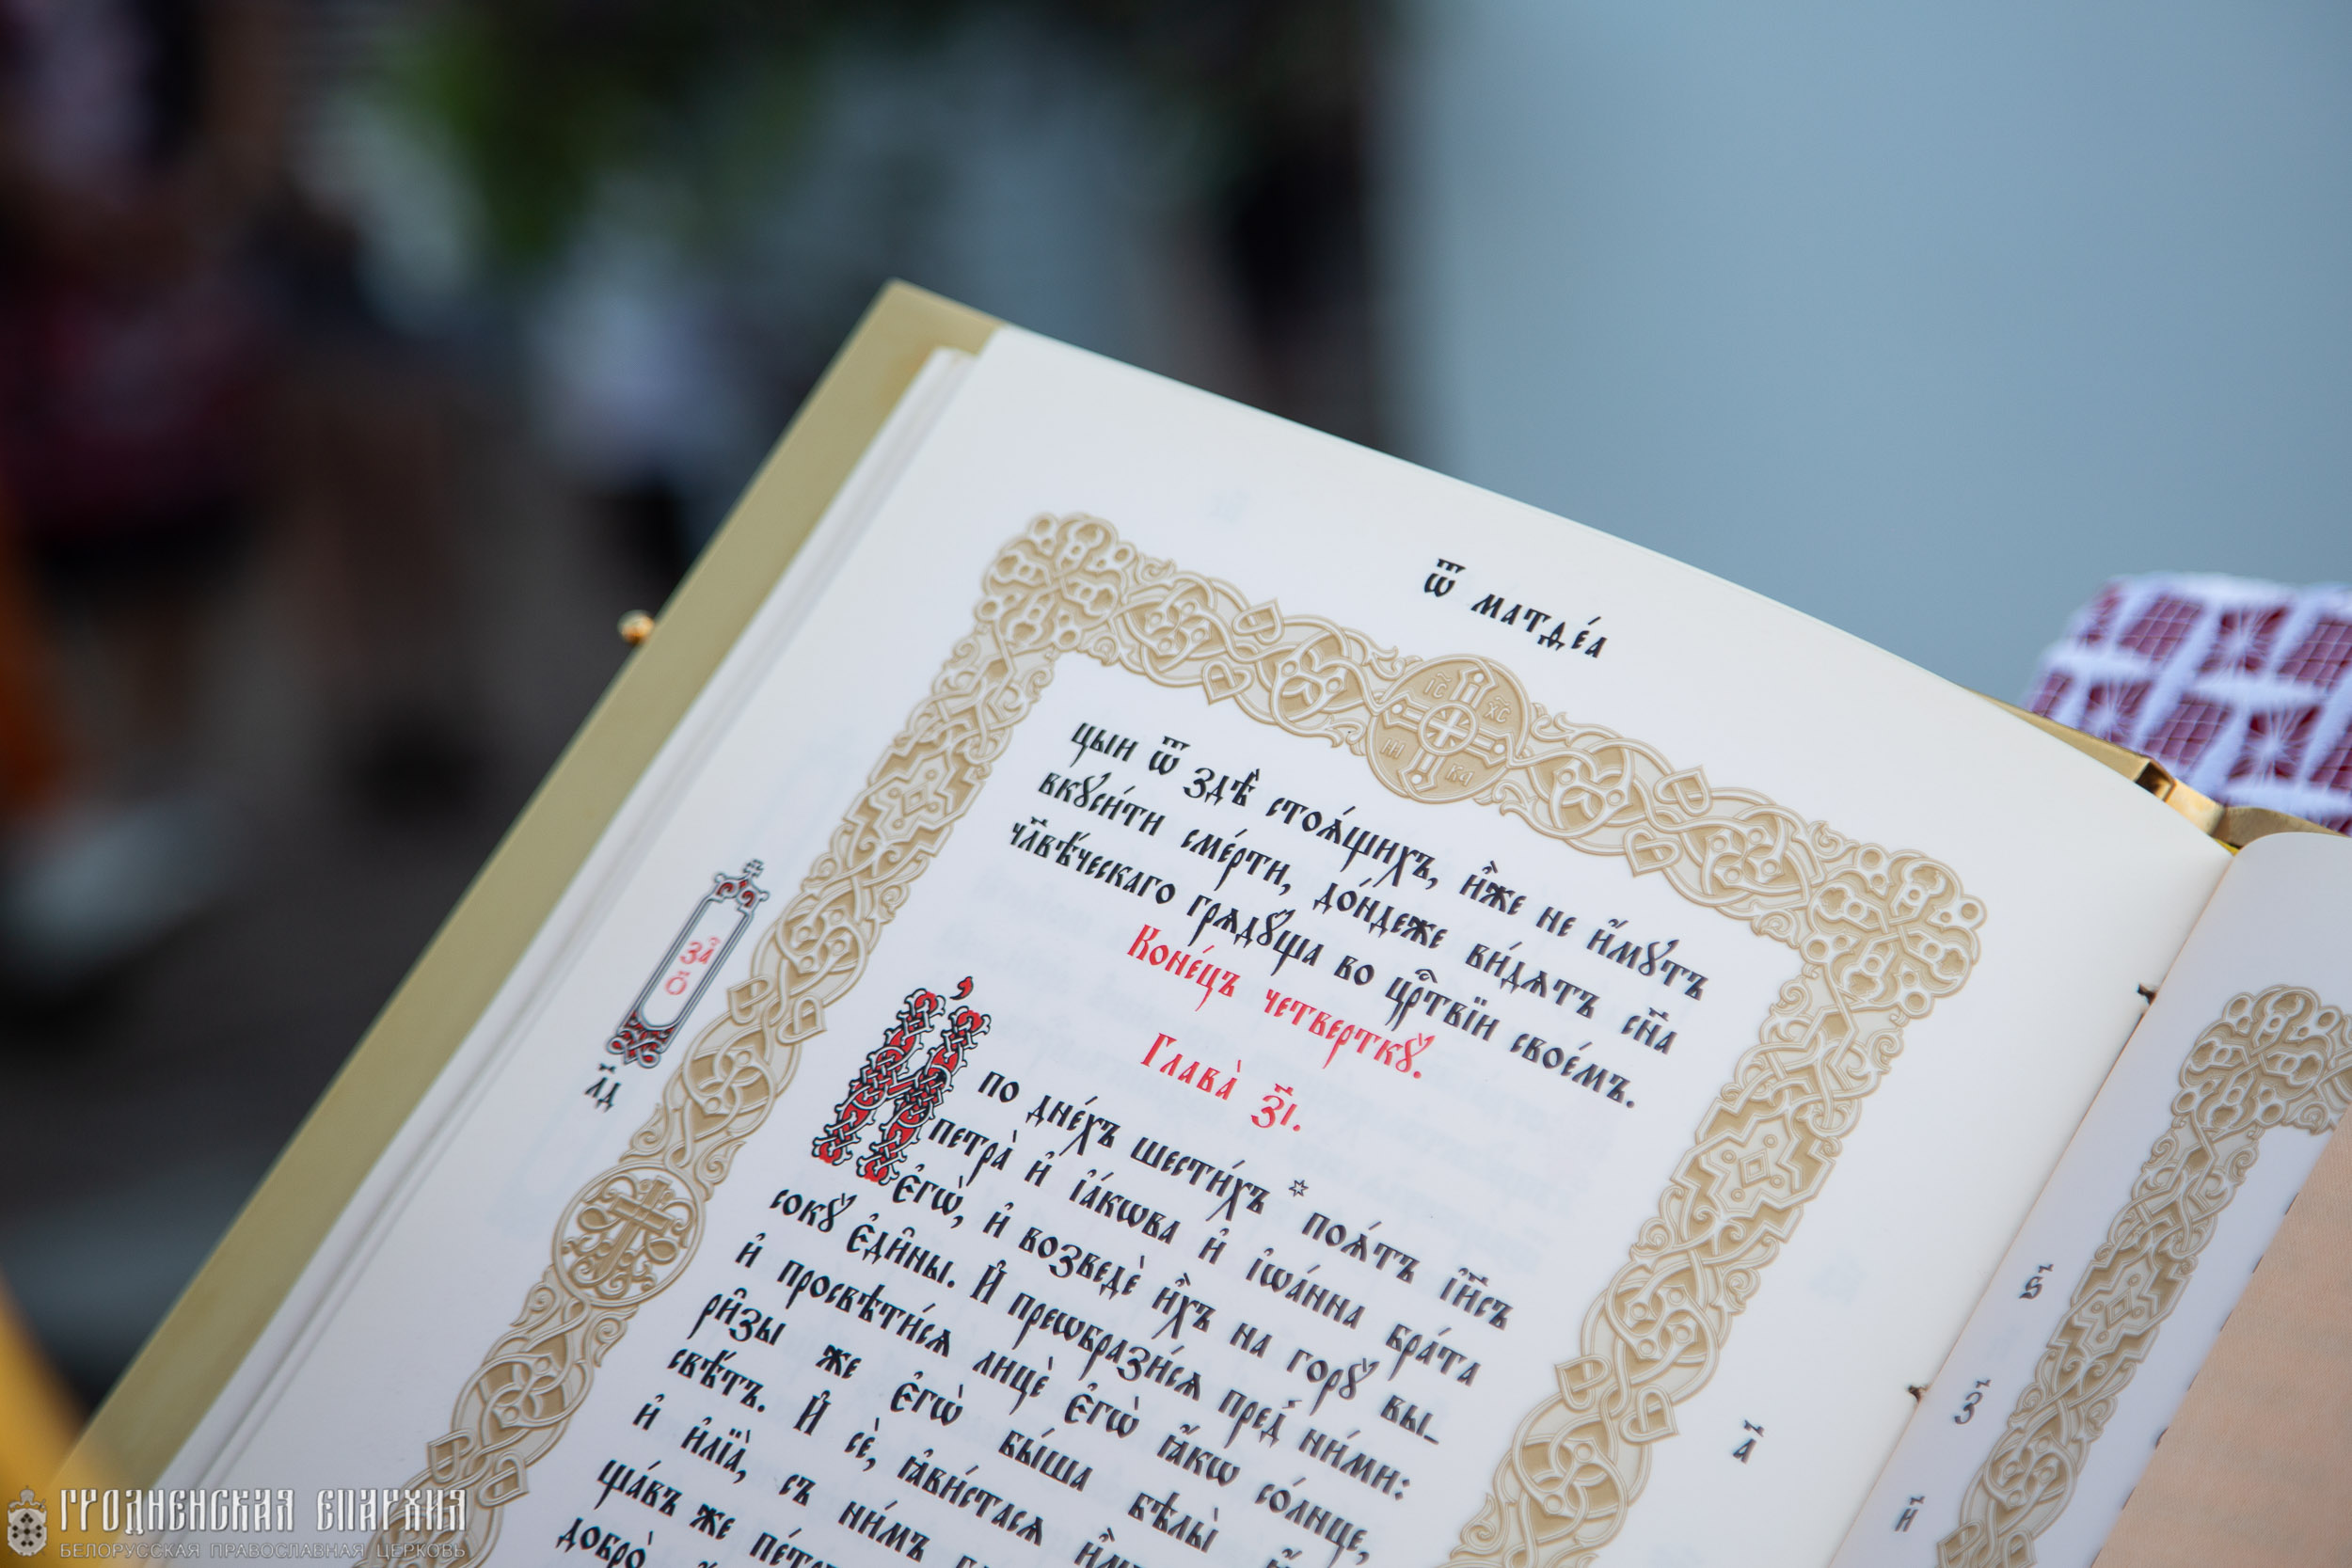 ѿ матѳе́а
цыи ѿ здѣ̀ стоѧ́щихъ, и҆̀же не и҆́мꙋтъ
вкꙋси́ти сме́рти, до́ндеже ви́дѧтъ сн҃а
чл҃вѣ́ческаго грѧдꙋ́ща во црⷭ҇твїи свое́мъ.
Коне́цъ четверткꙋ̀.
Глава̀ з҃і.
за҄
о҃
л҃д
И҆ по дне́хъ шести́хъ * поѧ́тъ і҆и҃съ
петра̀ и҆ і҆а́кѡва и҆ і҆ѡа́нна бра́та
є҆гѡ̀, и҆ возведѐ и҆̀хъ на горꙋ̀ вы_
сокꙋ̀ є҆ди҄ны. И҆ преѡбрази́сѧ пред̾ ни́ми:
и҆ просвѣти́сѧ лицѐ є҆гѡ̀ ꙗ҆́кѡ со́лнце,
ри҄зы же є҆гѡ̀ бы́ша бѣлы̀
свѣ́тъ. И҆ сѐ, ꙗ҆ви́стасѧ
и҆ и҆лїа̀, съ ни́мъ
ща́въ же
добро̀
а҃
ѕ҃
з҃
и҃
ГРОДНЕНСКАЯ ЕПАРХИЯ
БЕЛОРУССКАЯ ПРАВОСЛАВНАЯ ЦЕРКОВЬ